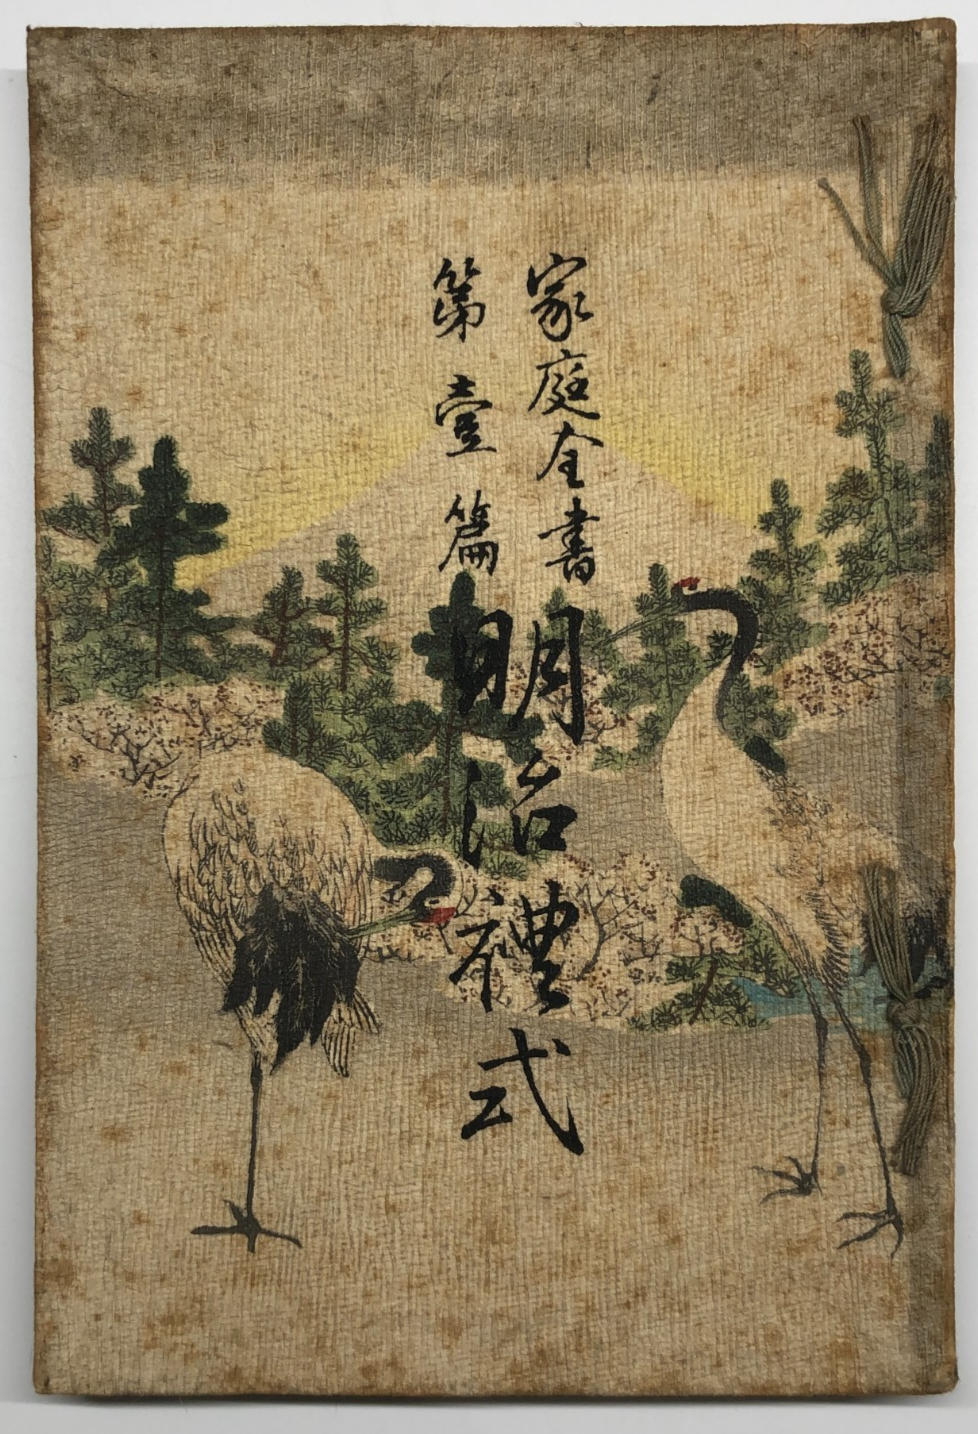 家庭全書
第壹篇
明治禮式